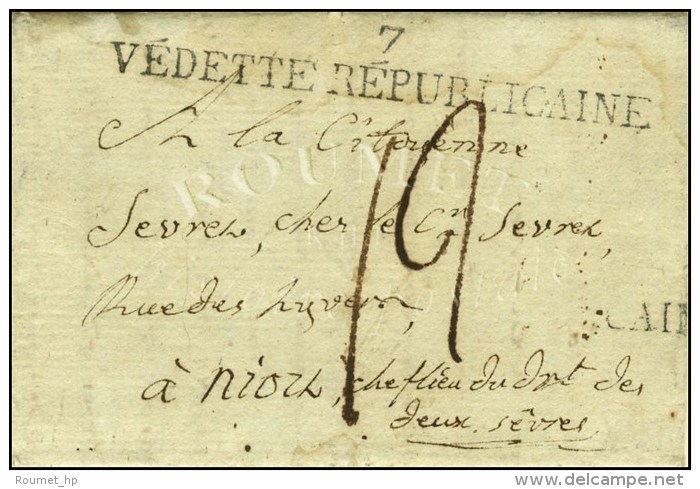 7
VÉDETTE RÉPUBLICAINE
A la Citoyenne
ROUMET
Sevret, chez le Cn Sevret,
Rue des
à niort, chef lieu du Dpt. des
deux sèvres
19
CAIN
Roumet_hp
©delcampe.net